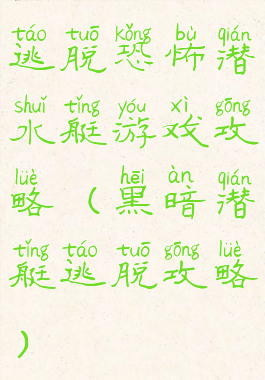 táo tuō kǒng bù qián
逃脱恐怖潜
shuǐ tǐng yóu xì gōng
水艇游戏攻
lüè hēi àn qián
略（黑暗潜
tǐng táo tuō gōng lüè
艇逃脱攻略
）